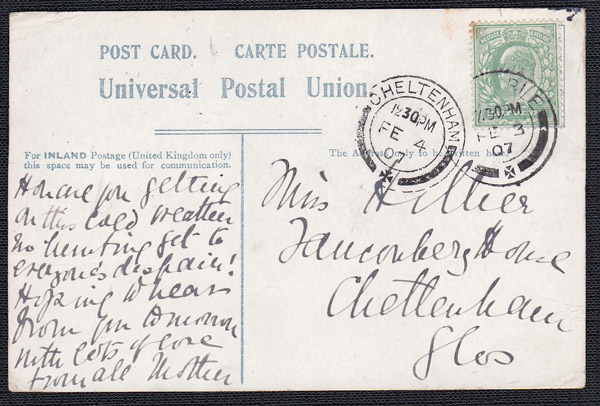 POST CARD. CARTE POSTALE.
Universal Postal Union.
CHELTENHAM
12.30PM
FE 4
07
30PM
FE 3
07
For INLAND Postage (United Kingdom only)
this space may be used for communication.
The Address only to be written here.
How are you getting
on this cold weather
no hunting yet to
everyone's despair!
Hoping to hear
from you tomorrow
with lots of love
from all Mother
Miss Hillier
Fauconberg House
Cheltenham
Glos